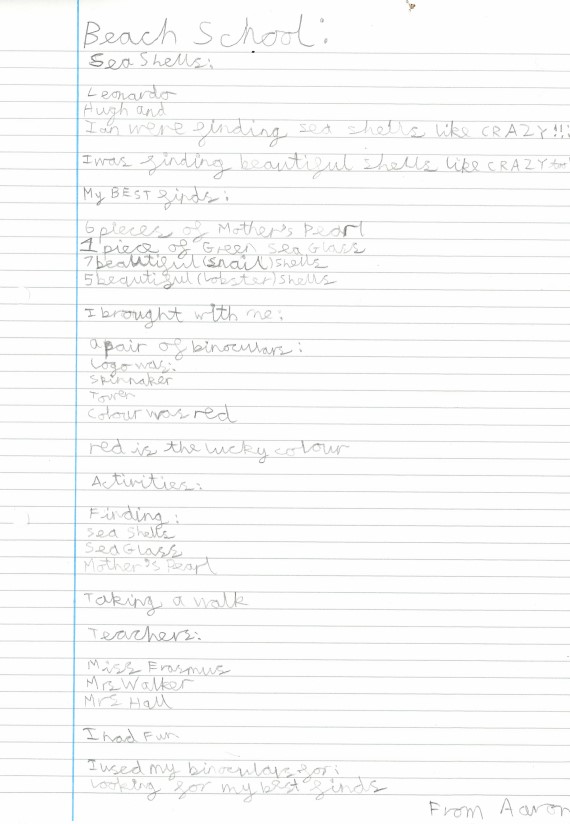 Beach School:
Sea Shells:
Leonardo
Hugh and
Ian were finding sea shells like CRAZY!!!
I was finding beautiful shells like CRAZY
My BEST finds:
6 pieces of Mother's Pearl
1 piece of Green Sea Glass
7 beautiful (snail) shells
5 beautiful (lobster) shells
I brought with me:
a pair of binoculars:
Logo was:
Spinnaker
Tower
Colour was red
red is the lucky colour
Activities:
Finding:
Sea Shells
Sea Glass
Mother's Pearl
Taking a walk
Teachers:
Miss Erasmus
Mrs Walker
Mrs Hall
I had Fun
I used my binoculars for:
Looking for my best finds
From Aaron